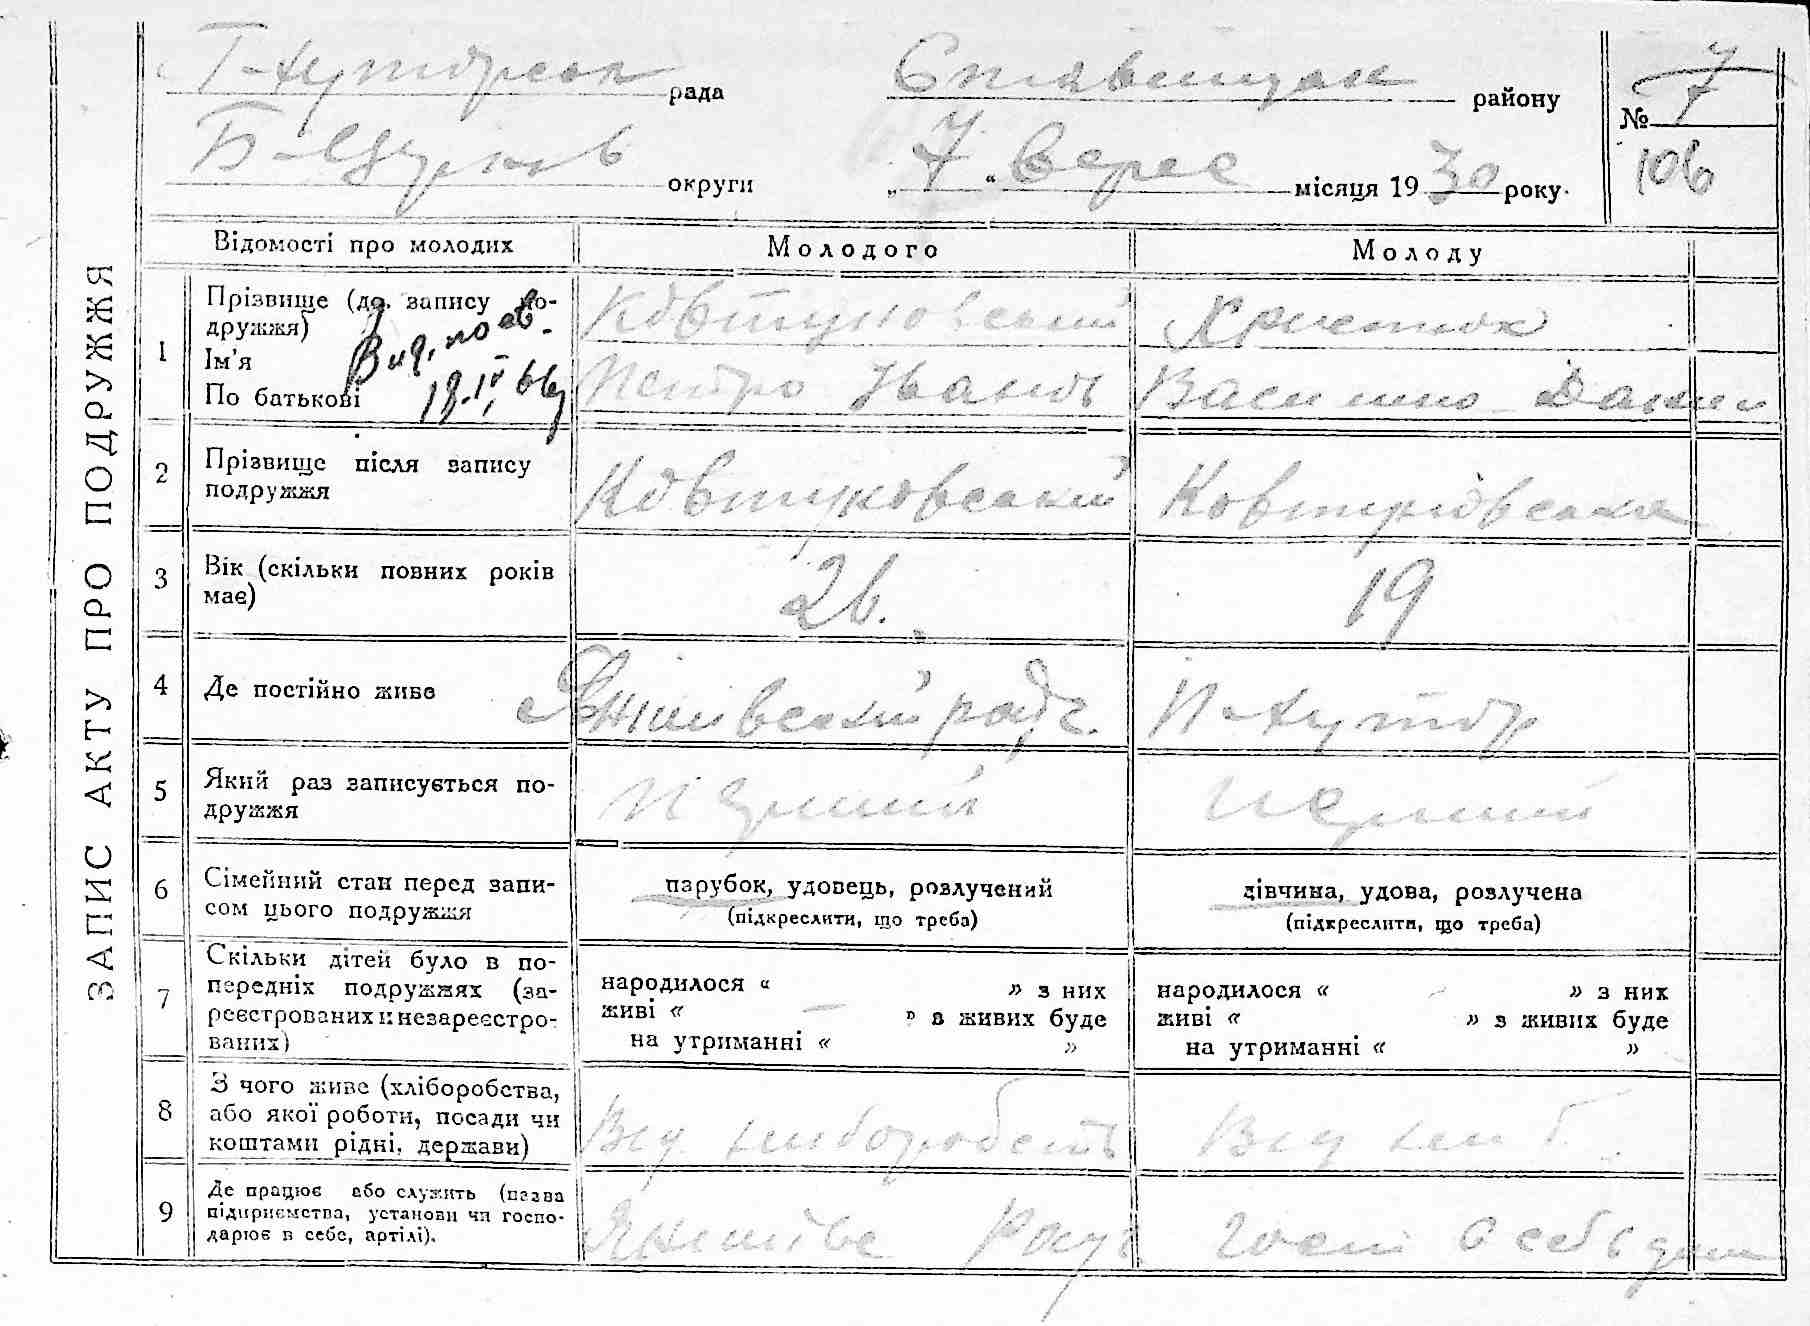 Г-Хуторськ рада Ставищан району № 7
Б-Церків округи „ 7 “ Верес місяця 19 30 року. 106
ЗАПИС АКТУ ПРО ПОДРУЖЖЯ
Відомості про молодих Молодого Молоду
1 Прізвище (до запису по-
дружжя)
Ім'я
По батькові
18.IV.
Ковтуновський Христюк
Петро Іванов
2 Прізвище після запису
подружжя
Ковтуновський Ковтунівська
3 Вік (скільки повних років
має)
26. 19
4 Де постійно живе
П-Хутор
5 Який раз записується по-
дружжя
Перший Перший
6 Сімейний стан перед запи-
сом цього подружжя
парубок, удовець, розлучений
(підкреслити, що треба)
дівчина, удова, розлучена
(підкреслити, що треба)
7 Скільки дітей було в по-
передніх подружжях (за-
реєстрованих і незареєстро-
ваних)
народилося “ — ” з них
живі « — » з живих буде
на утриманні « »
народилося « - » з них
живі « » з живих буде
на утриманні « »
8 З чого живе (хліборобства,
або якої роботи, посади чи
коштами рідні, держави)
Від хліборобств Від хліб.
9 Де працює або служить (назва
підприємства, установи чи госпо-
дарює в себе, артілі).
госп